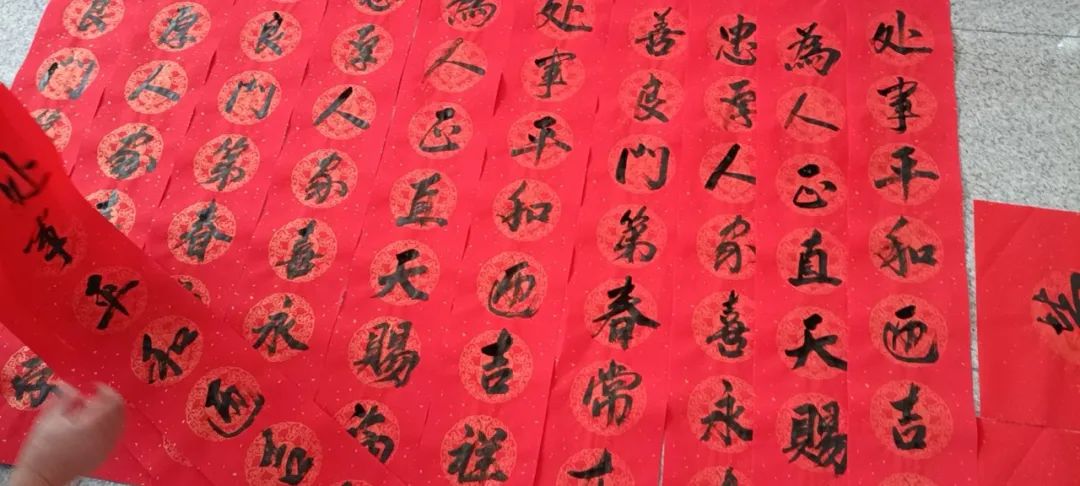 处事平和迎吉
為人正直天賜
忠厚人家喜永
善良门第春常
处事平和迎吉祥
為人正直天賜
厚人家喜永
良门第春
厚人家
良门
处事平和迎吉